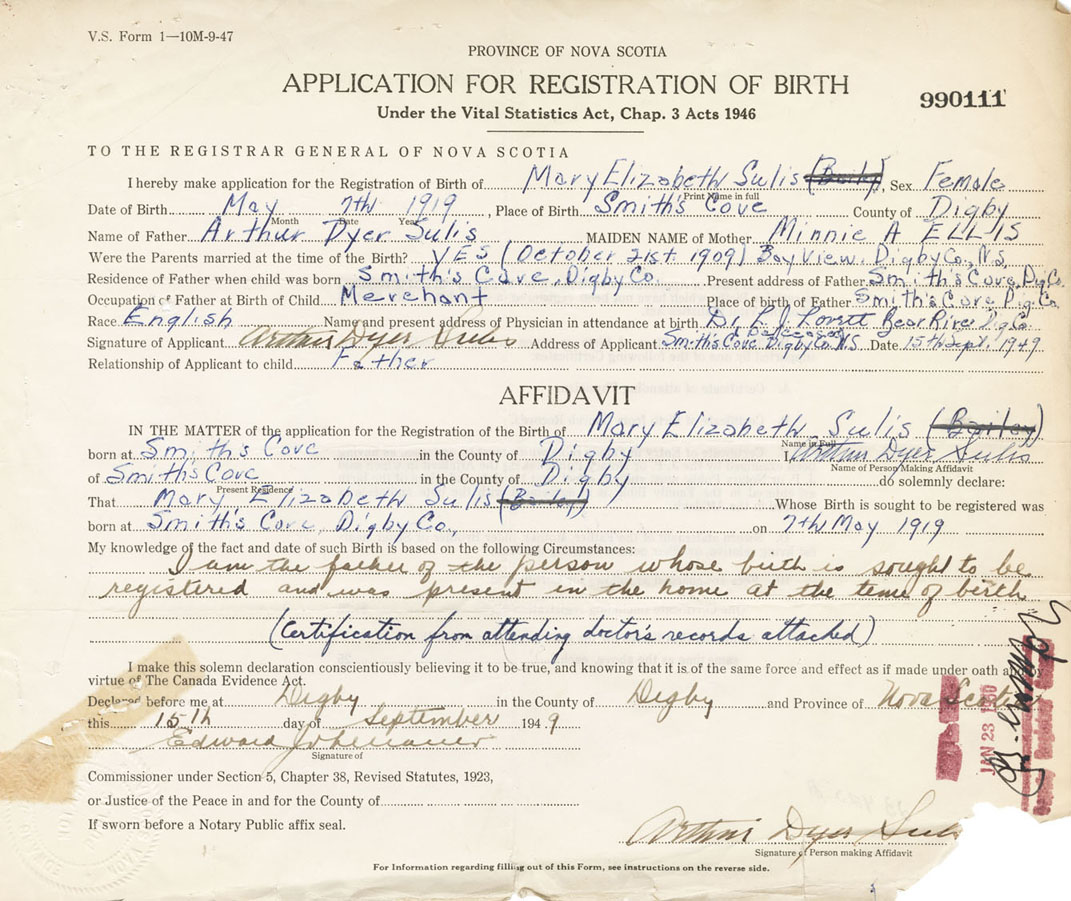 V.S. Form 1—10M-9-47
PROVINCE OF NOVA SCOTIA
APPLICATION FOR REGISTRATION OF BIRTH
990111
Under the Vital Statistics Act, Chap. 3 Acts 1946
TO THE REGISTRAR GENERAL OF NOVA SCOTIA
I hereby make application for the Registration of Birth of Mary Elizabeth Sulis (Bailey), Sex Female
Print Name in full
Date of Birth May 7th 1919, Place of Birth Smith's Cove County of Digby
Month Date Year
Name of Father Arthur Dyer Sulis MAIDEN NAME of Mother Minnie A ELLIS
Were the Parents married at the time of the Birth? YES (October 21st 1909) Bay View, Digby Co., N.S.
Residence of Father when child was born Smith's Cove, Digby Co. Present address of Father Smith's Cove, Dig Co.
Occupation of Father at Birth of Child Merchant Place of birth of Father Smith's Cove Dig. Co.
Race English Name and present address of Physician in attendance at birth Dr. L. J. Lovett Bear River Dig Co.
deceased
Signature of Applicant Arthur Dyer Sulis Address of Applicant Smith's Cove Digby Co. N.S. Date 15th Sept. 1949
Relationship of Applicant to child Father
AFFIDAVIT
IN THE MATTER of the application for the Registration of the Birth of Mary Elizabeth Sulis (Bailey)
Name in Full
born at Smith's Cove in the County of Digby I, Arthur Dyer Sulis
Name of Person Making Affidavit
of Smith's Cove in the County of Digby do solemnly declare:
Present Residence
That Mary Elizabeth Sulis (Bailey) Whose Birth is sought to be registered was
born at Smith's Cove, Digby Co., on 7th May 1919
My knowledge of the fact and date of such Birth is based on the following Circumstances:
I am the father of the person whose birth is sought to be
registered and was present in the home at the time of birth
(Certification from attending doctor's records attached)
I make this solemn declaration conscientiously believing it to be true, and knowing that it is of the same force and effect as if made under oath
virtue of The Canada Evidence Act.
Declared before me at Digby in the County of Digby and Province of Nova Scotia
this 15th day of September 1949
Edward
Signature of
JAN 23 1950
Commissioner under Section 5, Chapter 38, Revised Statutes, 1923,
or Justice of the Peace in and for the County of
If sworn before a Notary Public affix seal.
Arthur Dyer Sulis
Signature of Person making Affidavit
For Information regarding filling out of this Form, see instructions on the reverse side.